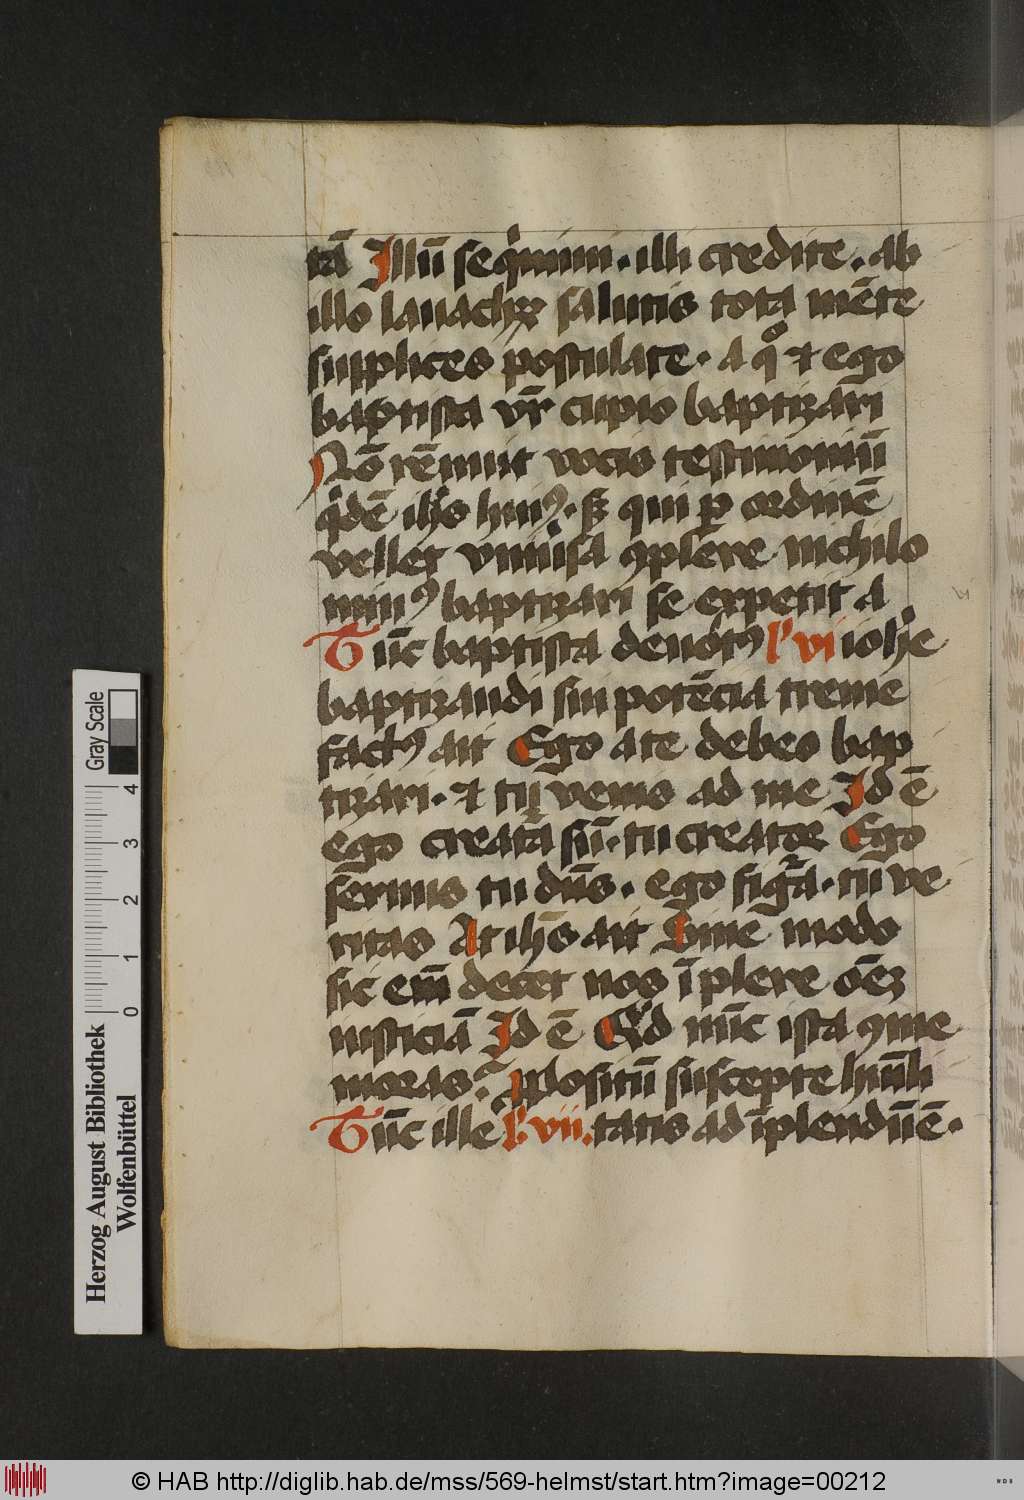 tā Illū seq̇mini · illi credite · ab
illo lauachꝝ salutis tota mēte
supplices postulate · a qͦ ⁊ ego
baptista vr̄ cupio baptizari
Nō rēnuit vocis testimoniū
q̇dē ih̄s huiꝰ · sꝫ qui ꝑ ordinē
vellet vniu͛sa ꝯplere nichilo
minꝰ baptizari se expetit a
Tūc baptista deuotꝰ L' vi ioh̄e
baptizandi sui potēcia treme
factꝰ ait Ego a te debeo bap
tizari · ⁊ tu venis ad me Id ē
ego creata sū · tu creator Ego
seruus tu dn̄s · ego figᵃa · tu ve
ritas At ih̄s ait Sine modo
sic em̄ decet nos īplere oēꝫ
iusticiā Id ē Qͥd nūc ista ꝯme
moras · ꝓpositū suscepte hu̅ili
Tūc ille L' vii. tatis ad īplendū ē ·
Herzog August Bibliothek
Wolfenbüttel
0 1 2 3 4
Gray Scale
© HAB http://diglib.hab.de/mss/569-helmst/start.htm?image=00212